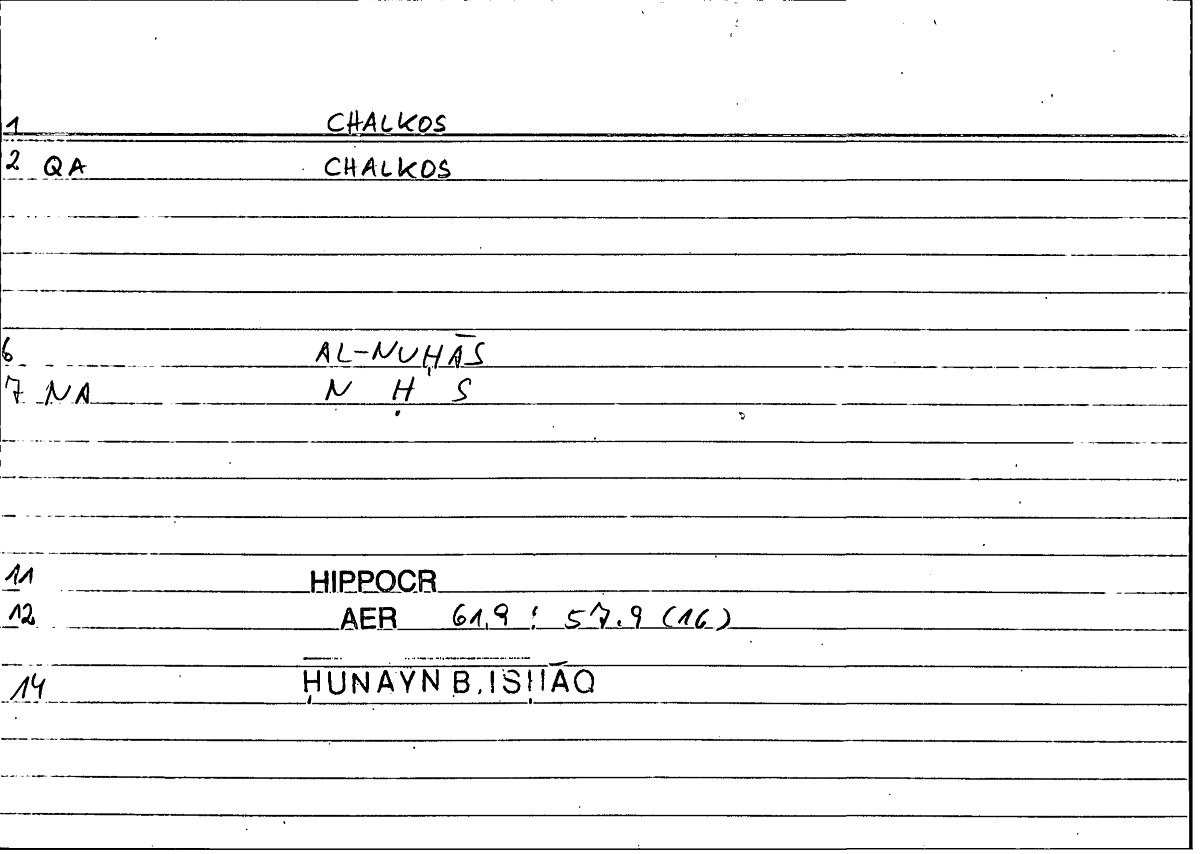 1 CHALKOS
2 QA CHALKOS
6 AL-NUḤĀS
7 NA N Ḥ S
11 HIPPOCR
12 AER 61,9 : 57.9 (16)
14 ḤUNAYN B. ISḤĀQ